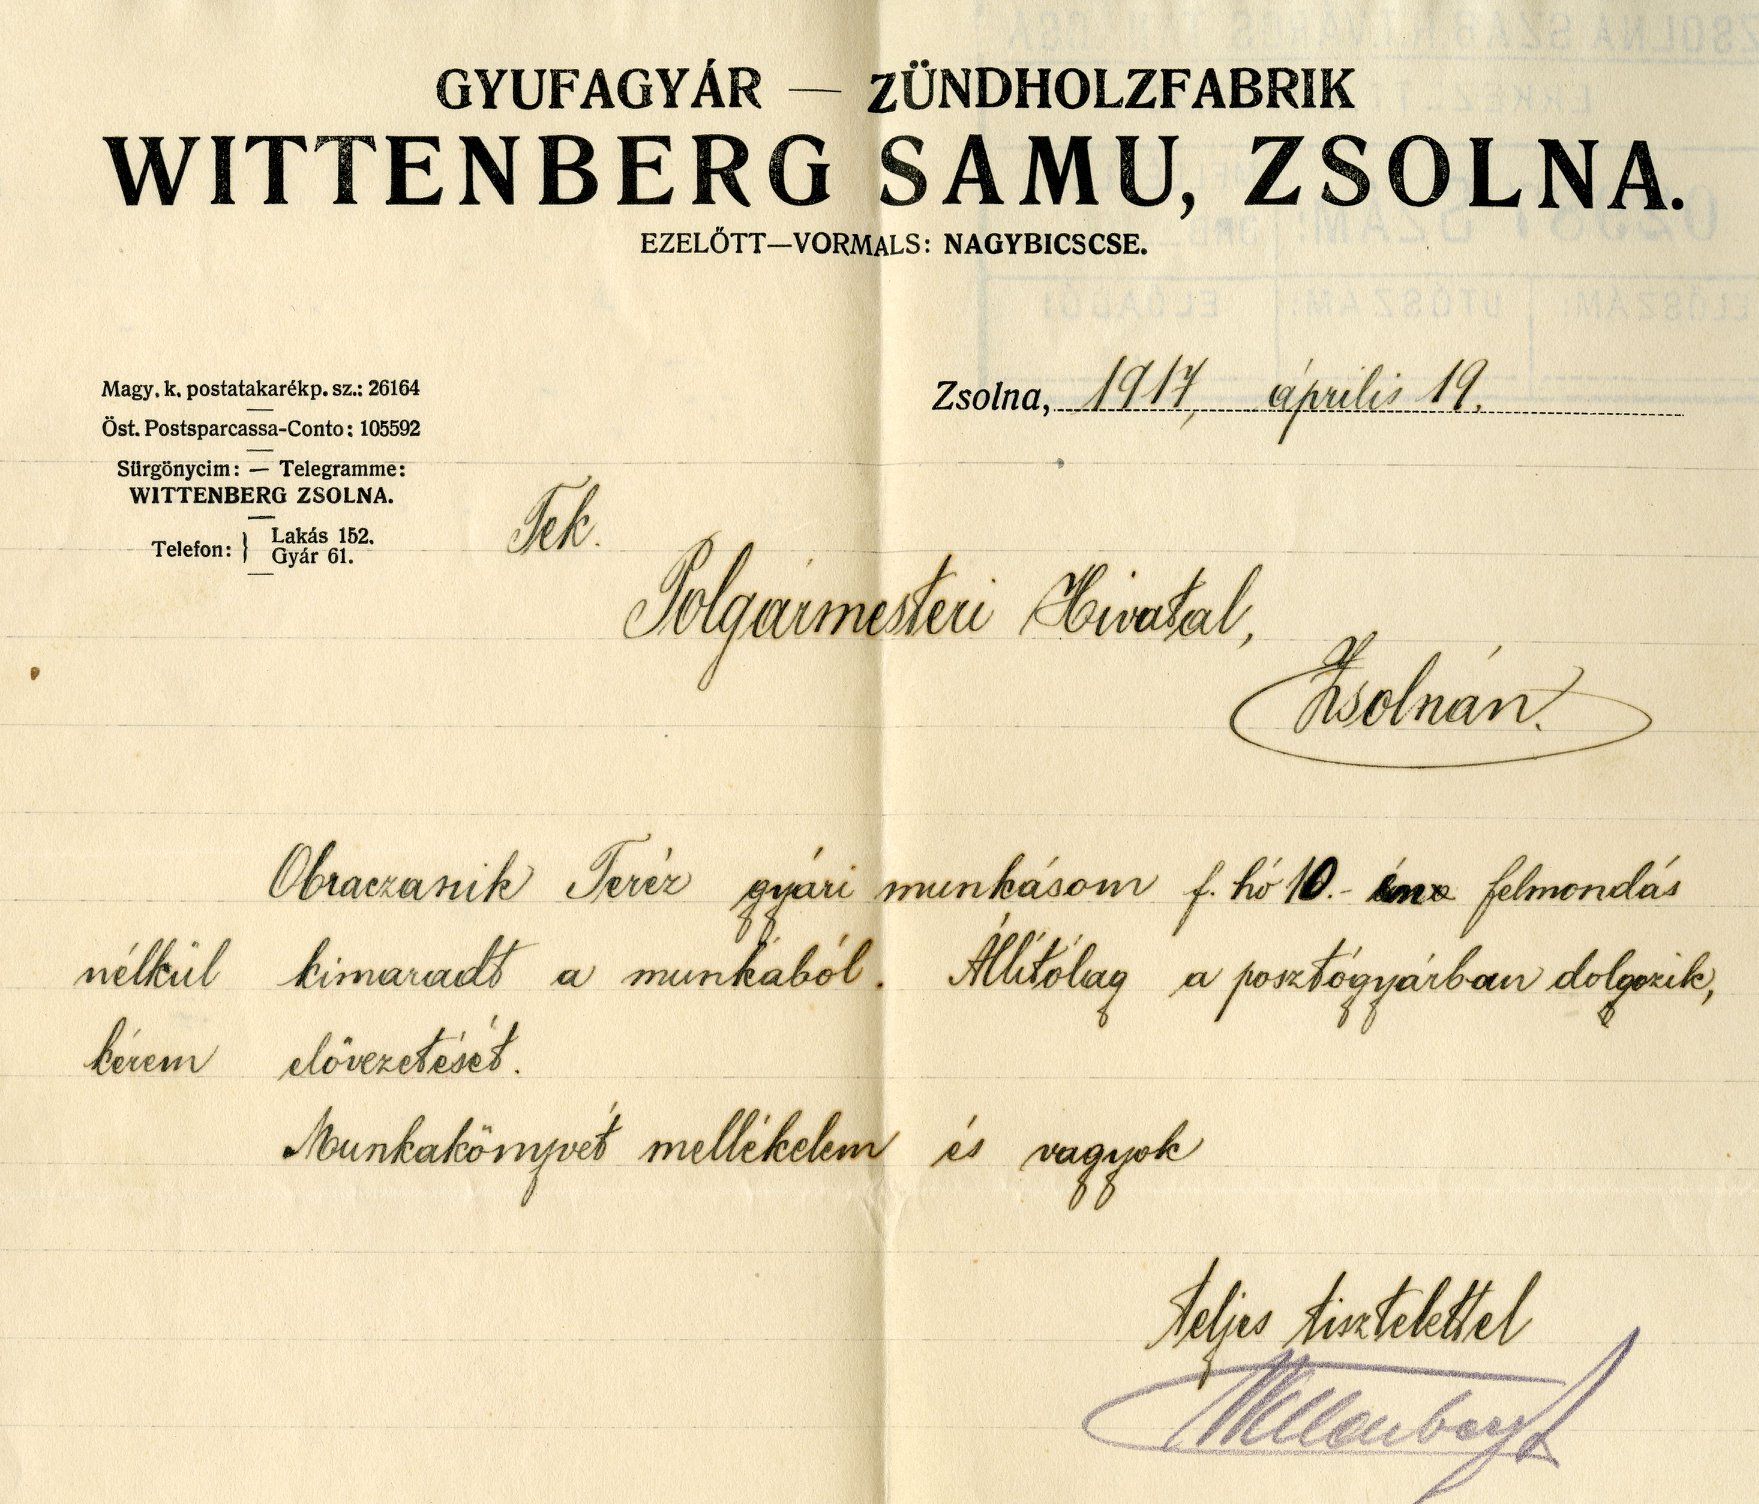 GYUFAGYÁR — ZÜNDHOLZFABRIK
WITTENBERG SAMU, ZSOLNA.
EZELŐTT—VORMALS: NAGYBICSCSE.
Magy. k. postatakarékp. sz.: 26164
Öst. Postsparcassa-Conto: 105592
Sürgönycim: — Telegramme:
WITTENBERG ZSOLNA.
Telefon: } Lakás 152.
Gyár 61.
Zsolna, 1917, április 19.
Tek.
Polgármesteri Hivatal,
Zsolnán.
Obraczanik Teréz gyári munkásom f. hó 10.- én felmondás
nélkül kimaradt a munkából. Állitólag a posztógyárban dolgozik,
kérem elövezetését.
Munkakönyvét mellékelem és vagyok
teljes tisztelettel
Wittenberg S